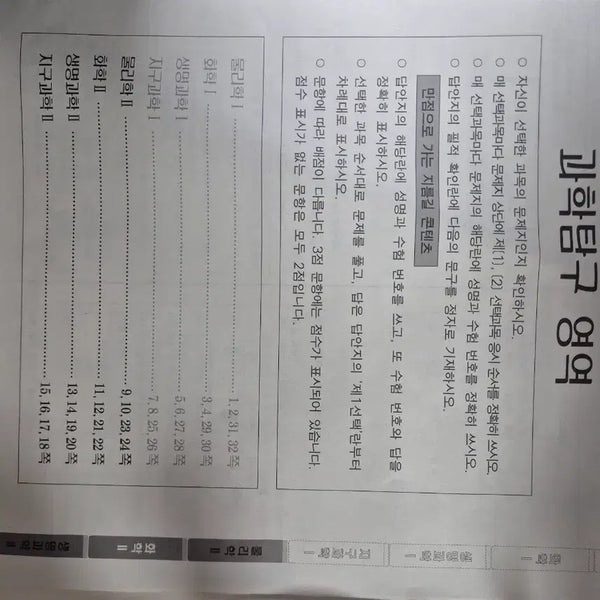 과학탐구 영역
○ 자신이 선택한 과목의 문제지인지 확인하시오.
○ 매 선택과목마다 문제지 상단에 제(1), (2) 선택과목 응시 순서를 정확히 쓰시오.
○ 매 선택과목마다 문제지의 해당란에 성명과 수험 번호를 정확히 쓰시오.
○ 답안지의 필적 확인란에 다음의 문구를 정자로 기재하시오.
만점으로 가는 지름길 콘텐츠
○ 답안지의 해당란에 성명과 수험 번호를 쓰고, 또 수험 번호와 답을
정확히 표시하시오.
○ 선택한 과목 순서대로 문제를 풀고, 답은 답안지의 '제1선택'란부터
차례대로 표시하시오.
○ 문항에 따라 배점이 다릅니다. 3점 문항에는 점수가 표시되어 있습니다.
점수 표시가 없는 문항은 모두 2점입니다.
물리학 Ⅰ 1, 2, 31, 32 쪽
화학 Ⅰ 3, 4, 29, 30 쪽
생명과학 Ⅰ 5, 6, 27, 28 쪽
지구과학 Ⅰ 7, 8, 25, 26 쪽
물리학 Ⅱ 9, 10, 23, 24 쪽
화학 Ⅱ 11, 12, 21, 22 쪽
생명과학 Ⅱ 13, 14, 19, 20 쪽
지구과학 Ⅱ 15, 16, 17, 18 쪽
화학 Ⅰ
생명과학 Ⅰ
지구과학 Ⅰ
물리학 Ⅱ
화학 Ⅱ
생명과학 Ⅱ